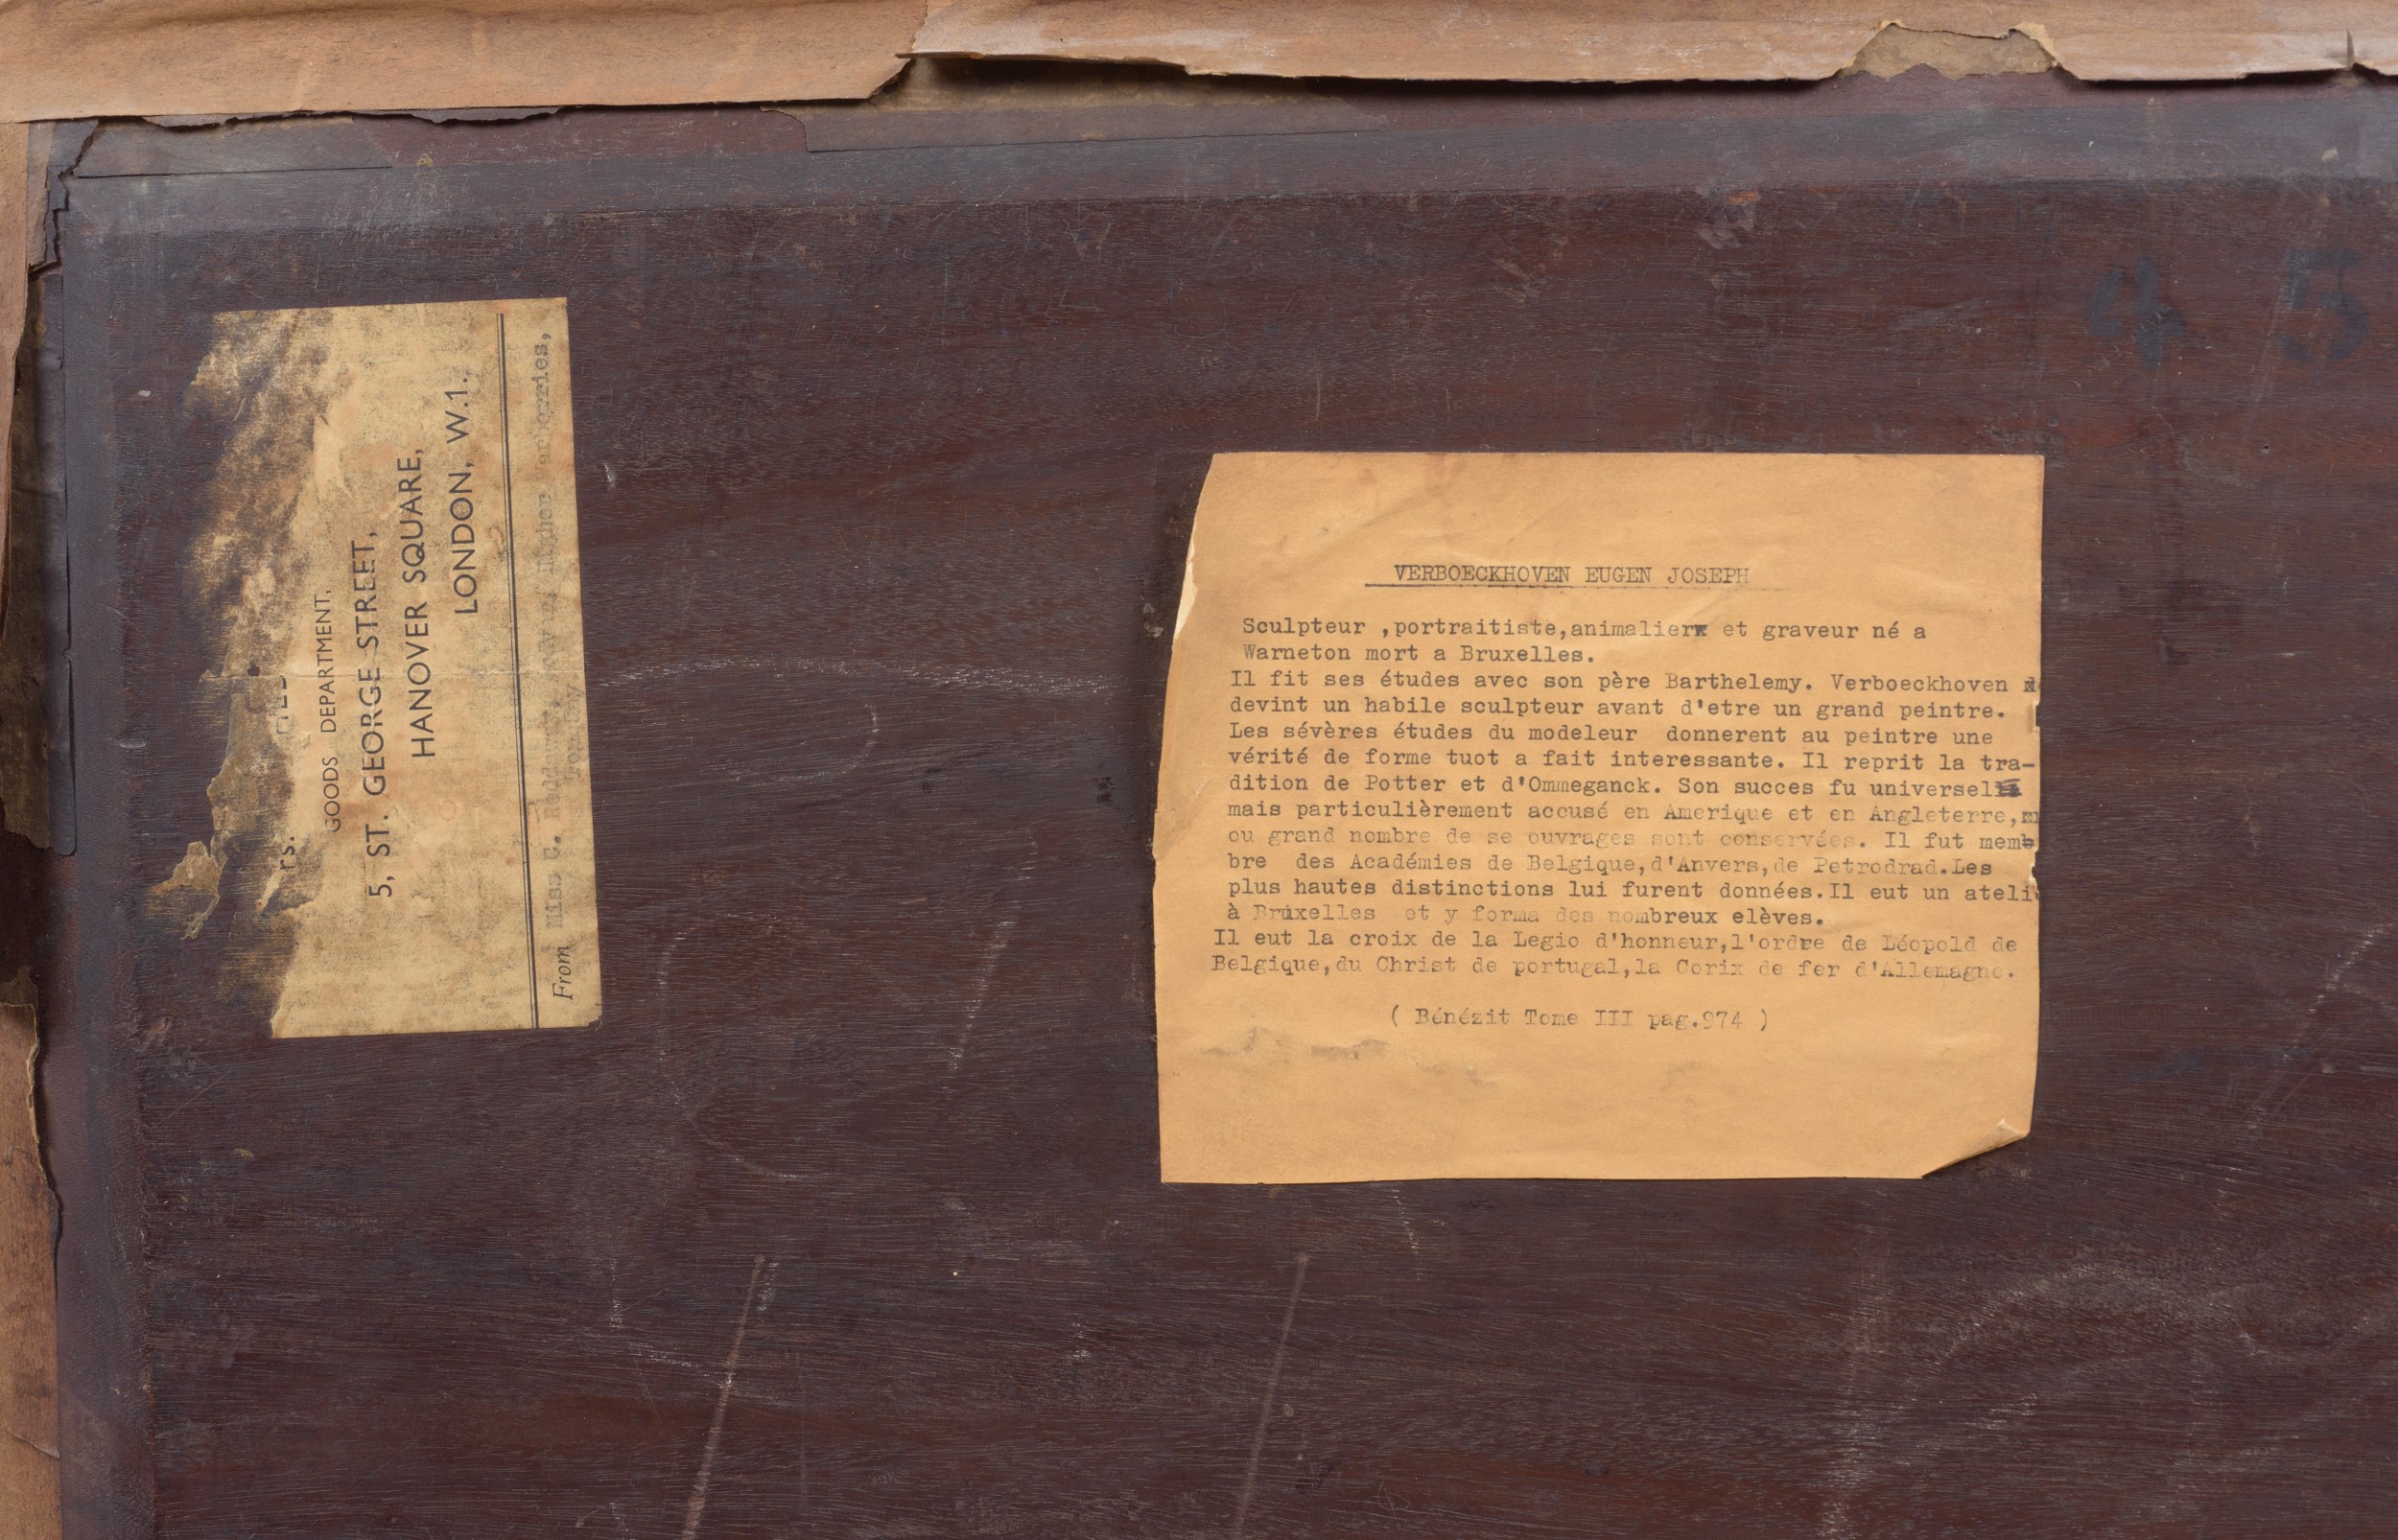 rs.
GOODS DEPARTMENT,
5, ST. GEORGE STREET,
HANOVER SQUARE,
LONDON, W.1.
From Miss C.
4 5
VERBOECKHOVEN EUGEN JOSEPH
Sculpteur ,portraitiste,animalier et graveur né a
Warneton mort a Bruxelles.
Il fit ses études avec son père Barthelemy. Verboeckhoven
devint un habile sculpteur avant d'etre un grand peintre.
Les sévères études du modeleur donnerent au peintre une
vérité de forme tuot a fait interessante. Il reprit la tra-
dition de Potter et d'Ommeganck. Son succes fu universel
mais particulièrement accusé en Amerique et en Angleterre,
ou grand nombre de se ouvrages sont conservées. Il fut mem
bre des Académies de Belgique,d'Anvers,de Petrodrad.Les
plus hautes distinctions lui furent données.Il eut un ateli
à Bruxelles et y forma des nombreux elèves.
Il eut la croix de la Legio d'honneur,l'ordre de Léopold de
Belgique,du Christ de portugal,la Corix de fer d'Allemagne.
( Bénézit Tome III pag.974 )